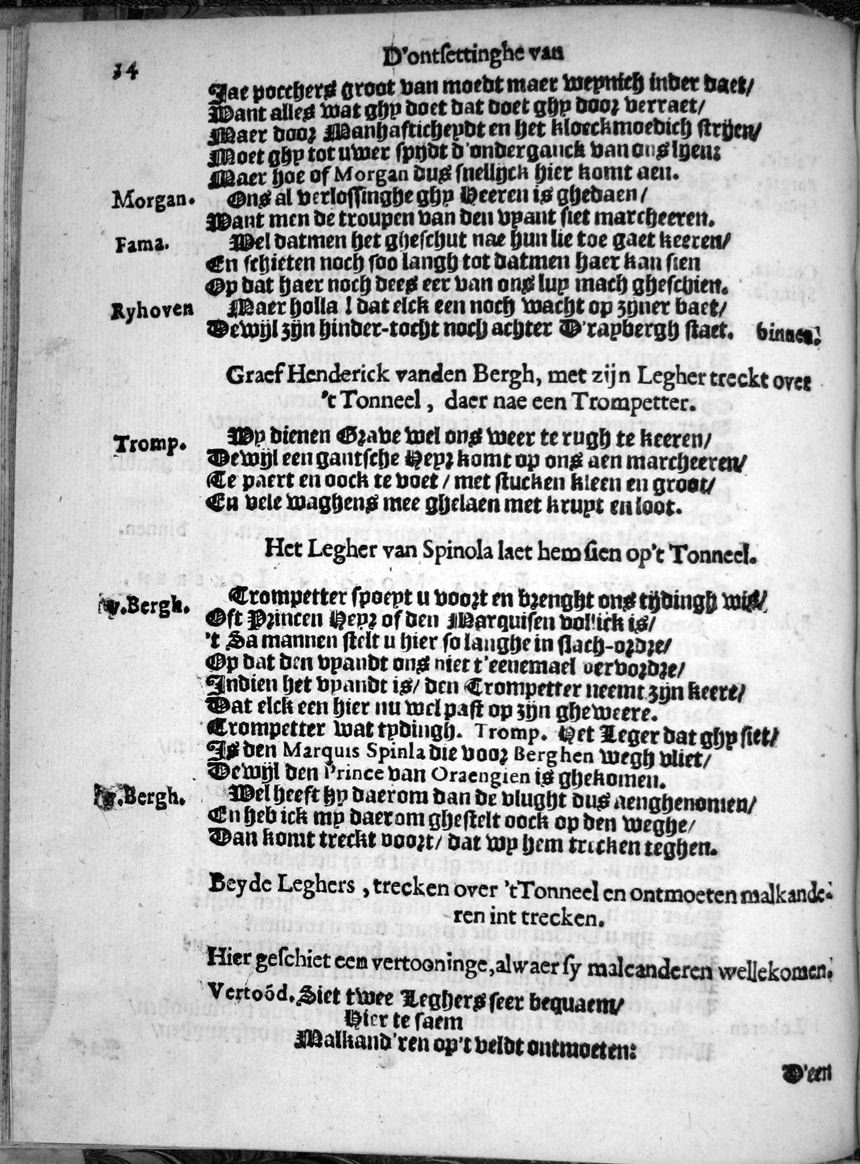 14
D'ontsettinghe van
Jae pocchers groot van moedt maer weynich inder daet/
Want alles wat ghy doet dat doet ghy door verraet/
Maer door Manhafticheydt en het kloeckmoedich stryen/
Moet ghy tot uwer spydt d'onderganck van ons lyen:
Maer hoe of Morgan dus snellijck hier komt aen.
Morgan. Ons al verlossinghe ghy Heeren is ghedaen/
Want men de troupen van den vyant siet marcheeren.
Fama. Wel datmen het gheschut nae hun lie toe gaet keeren/
En schieten noch soo langh tot datmen haer kan sien
Op dat haer noch dees eer van ons luy mach gheschien.
Ryhoven Maer holla! dat elck een noch wacht op zijner baet/
Dewijl zijn hinder-tocht noch achter D'raybergh staet. binnen.
Graef Henderick vanden Bergh, met zijn Legher treckt over
't Tonneel, daer nae een Trompetter.
Tromp. Wy dienen Grave wel ons weer te rugh te keeren/
Dewijl een gantsche Heyr komt op ons aen marcheeren/
Te paert en oock te voet/ met stucken kleen en groot/
En vele waghens mee ghelaen met kruyt en loot.
Het Legher van Spinola laet hem sien op't Tonneel.
v.Bergh. Trompetter spoeyt u voort en brenght ons tijdingh wis/
Oft Princen Heyr of den Marquisen vollick is/
't Sa mannen stelt u hier so langhe in slach-ordre/
Op dat den vyandt ons niet t'eenemael vervordre/
Indien het vyandt is/ den Trompetter neemt zijn keere/
Dat elck een hier nu wel past op zijn gheweere.
Trompetter wat tydingh. Tromp. Het Leger dat ghy siet/
Is den Marquis Spinla die voor Berghen wegh vliet/
Dewijl den Prince van Oraengien is ghekomen.
v.Bergh. Wel heeft hy daerom dan de vlught dus aenghenomen/
En heb ick my daerom ghestelt oock op den weghe/
Dan komt treckt voort/ dat wy hem trecken teghen.
Beyde Leghers, trecken over 'tTonneel en ontmoeten malkande-
ren int trecken.
Hier geschiet een vertooninge, alwaer sy malcanderen wellekomen.
Vertoõd. Siet twee Leghers seer bequaem/
Hier te saem
Malkand'ren op't veldt ontmoeten:
D'een